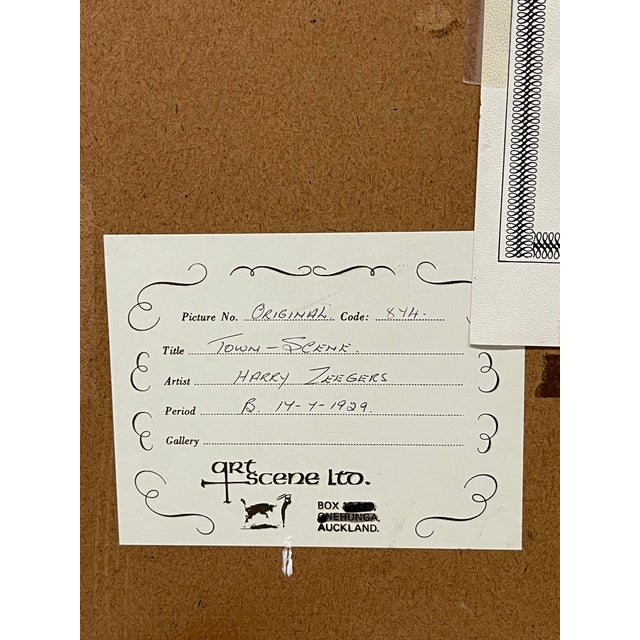 Picture No. ORIGINAL Code: 874.
Title TOWN-SCENE.
Artist HARRY ZEEGERS
Period B. 14-7-1929.
Gallery
art
scene ltd.
BOX
ONEHUNGA,
AUCKLAND.